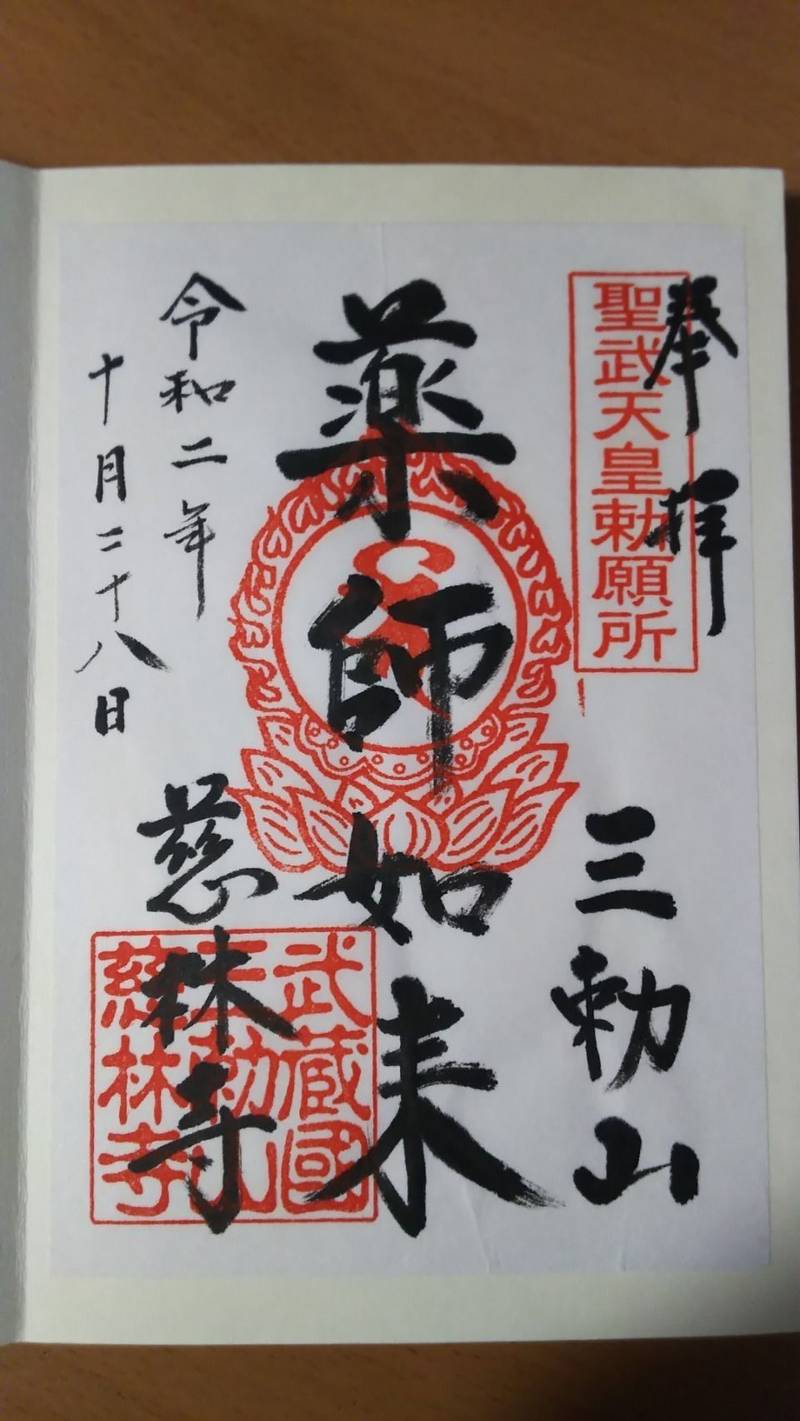 奉拝
聖武天皇勅願所
三勅山
薬師如来
令和二年
十月二十八日
慈林寺
武蔵國
三勅山
慈林寺